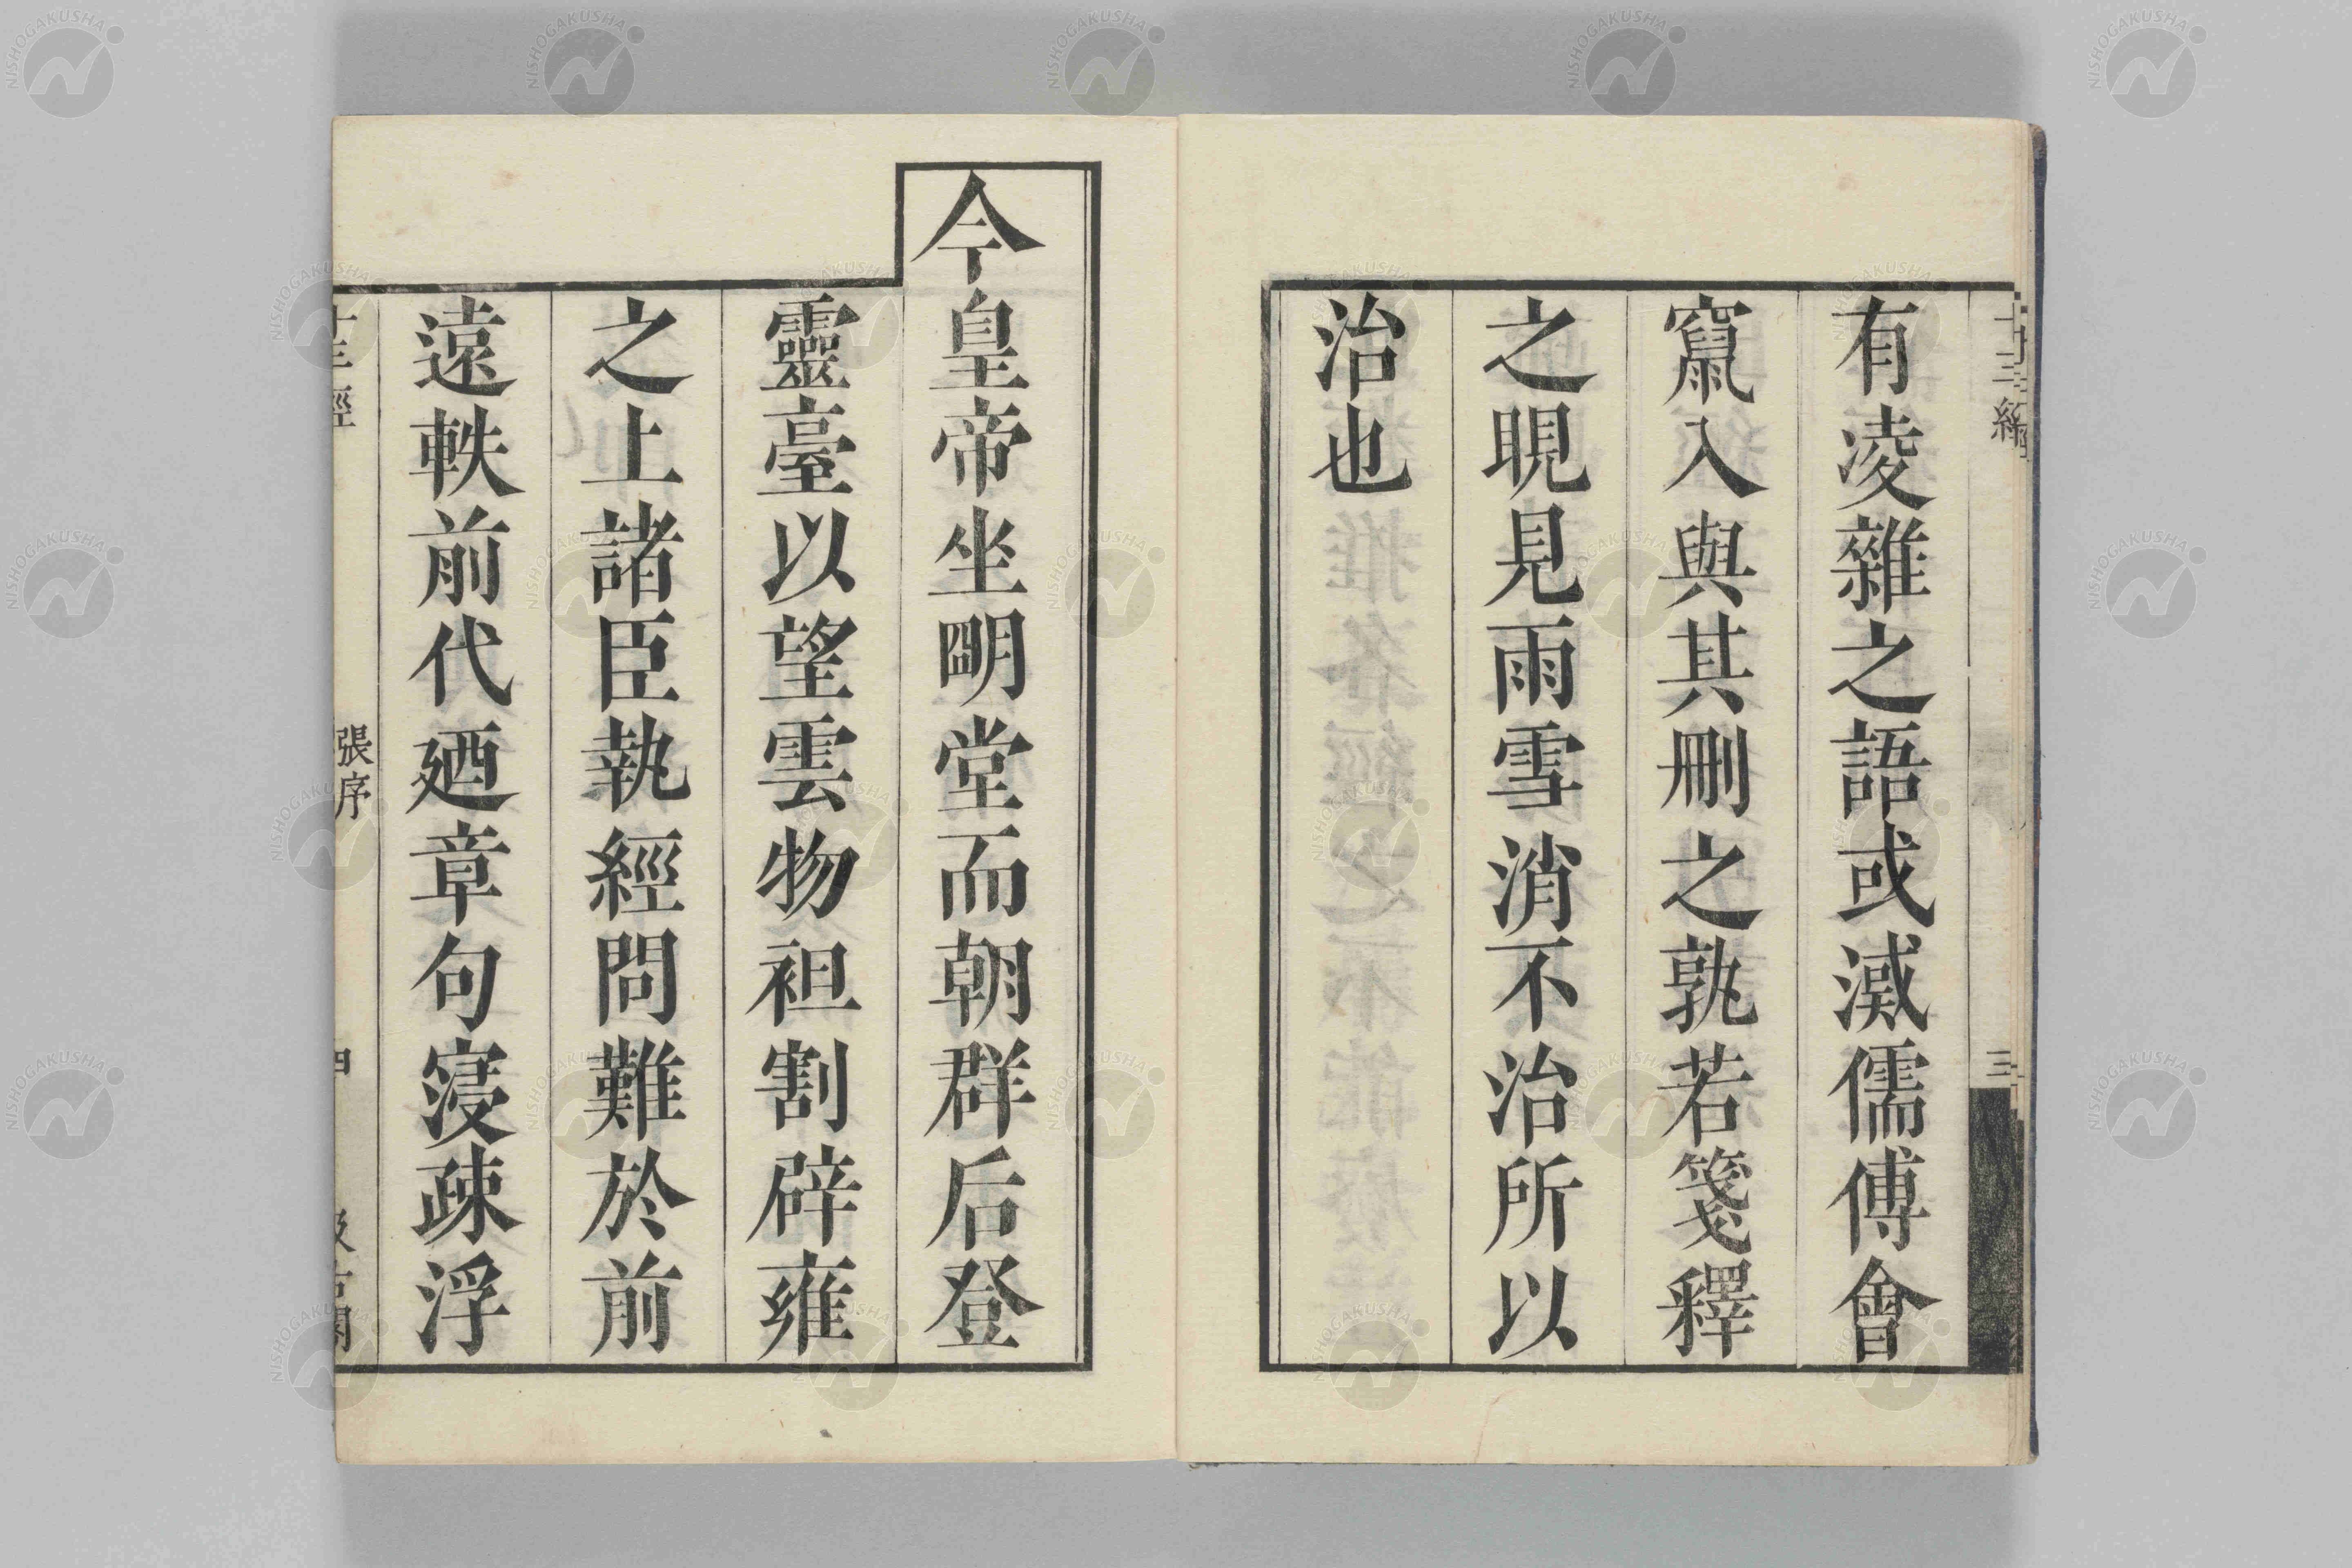 十三經 三
有凌雜之語或滅儒傅會
竄入與其刪之孰若箋釋
之晛見雨雪消不治所以
治也
今皇帝坐朙堂而朝群后登
靈臺以望雲物袒割辟雍
之上諸臣執經問難於前
遠軼前代廼章句寖疎浮
十三經 張序 四 汲古閣
NISHOGAKUSHA